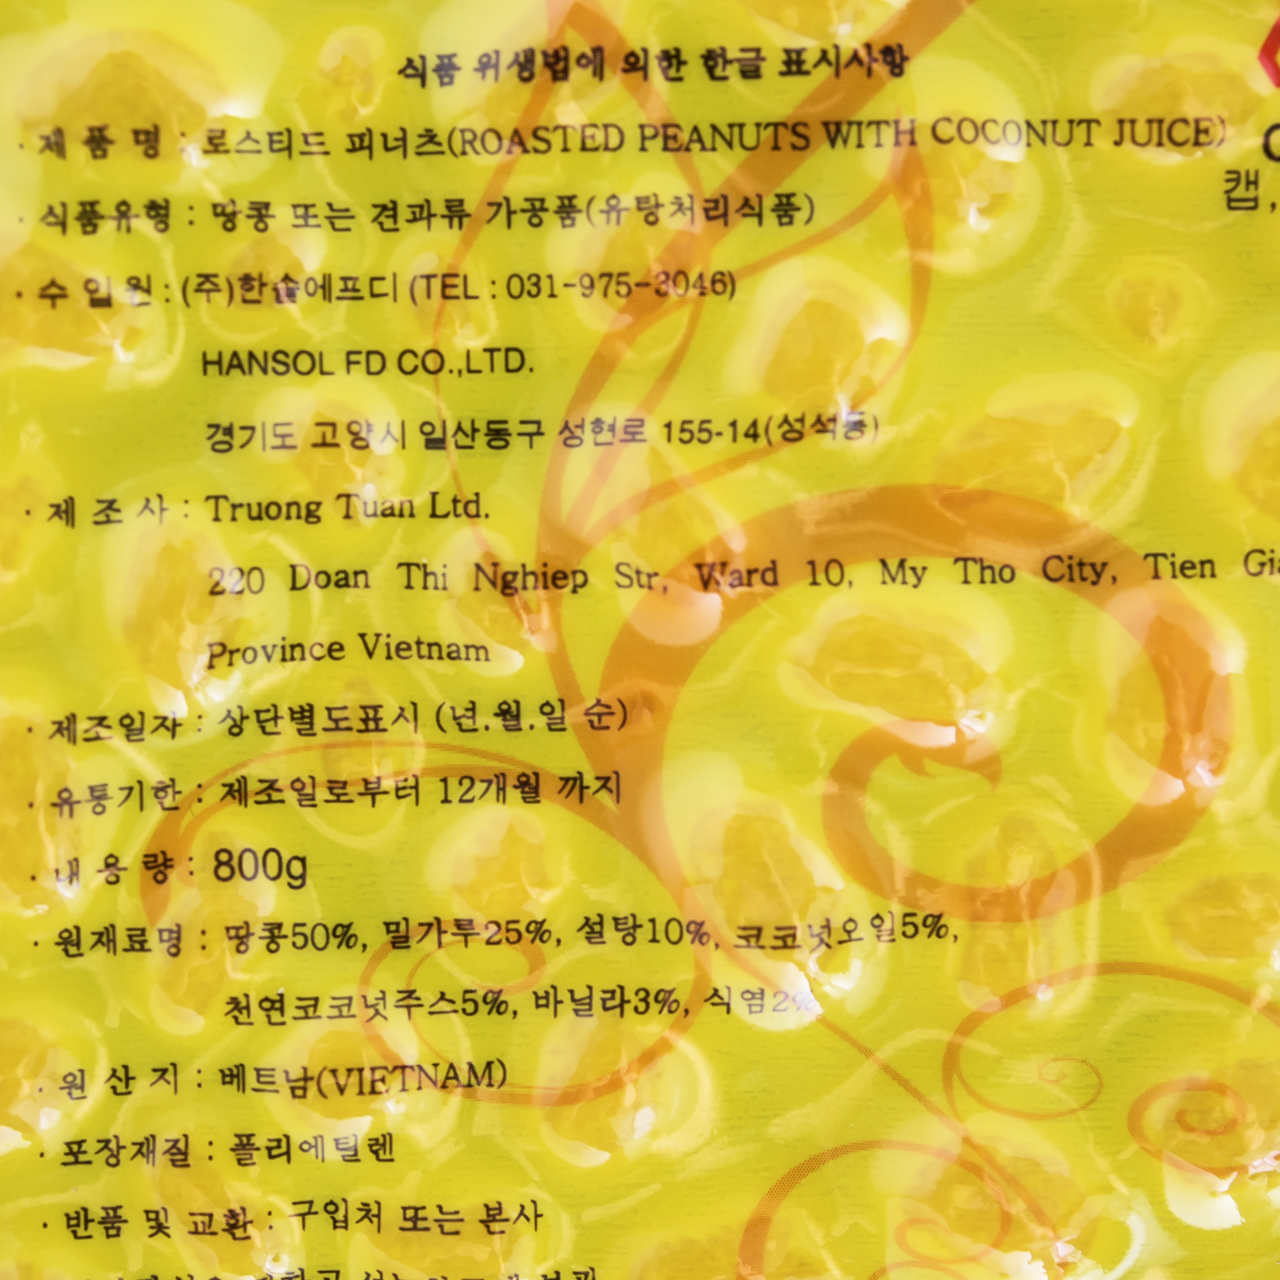 식품 위생법에 의한 한글 표시사항
· 제 품 명 : 로스티드 피너츠(ROASTED PEANUTS WITH COCONUT JUICE)
캡,
· 식품유형 : 땅콩 또는 견과류 가공품(유탕처리식품)
· 수 입 원 : (주)한솔에프디 (TEL : 031-975-3046)
HANSOL FD CO.,LTD.
경기도 고양시 일산동구 성현로 155-14(성석동)
· 제 조 사 : Truong Tuan Ltd.
220 Doan Thi Nghiep Str, Ward 10, My Tho City, Tien
Province Vietnam
· 제조일자 : 상단별도표시 (년.월.일 순)
· 유통기한 : 제조일로부터 12개월 까지
· 내 용 량 : 800g
· 원재료명 : 땅콩50%, 밀가루25%, 설탕10%, 코코넛오일5%,
천연코코넛주스5%, 바닐라3%, 식염2%
· 원 산 지 : 베트남(VIETNAM)
· 포장재질 : 폴리에틸렌
· 반품 및 교환 : 구입처 또는 본사